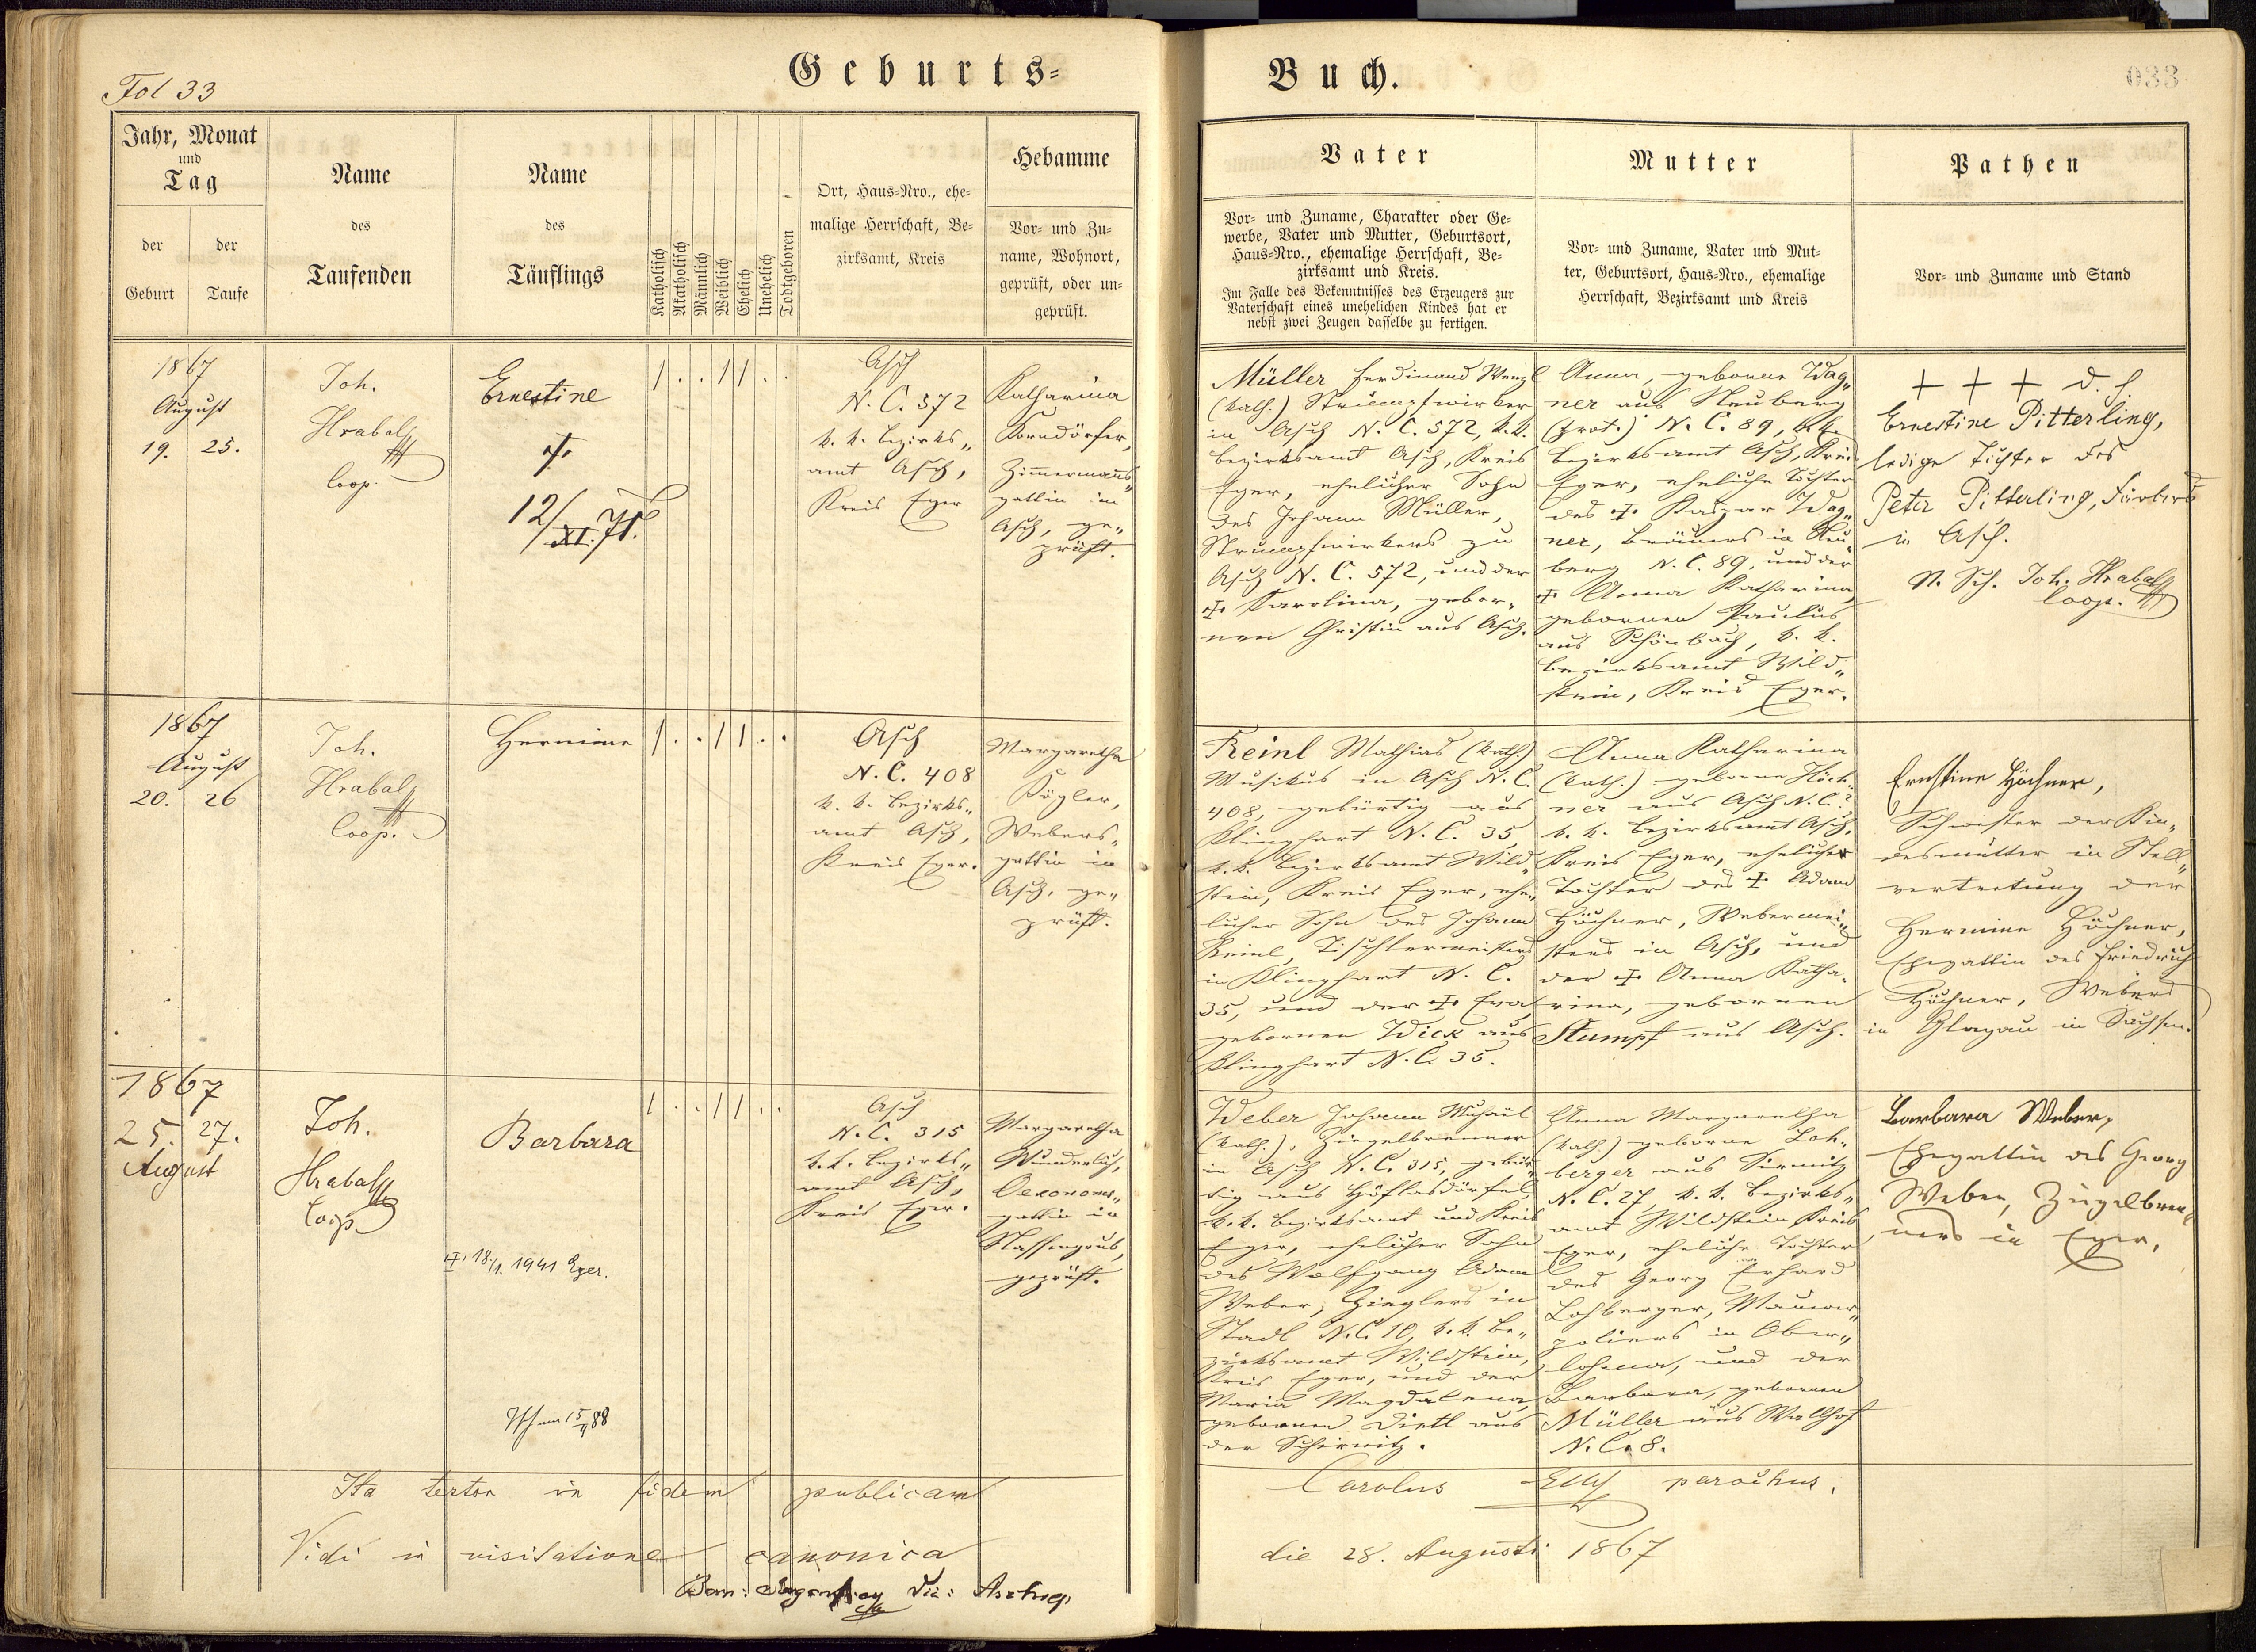 Fol 33
Geburts=
Buch.
033
Jahr, Monat
und
Tag
der
Geburt
der
Taufe
Name
des
Taufenden
Name
des
Täuflings
Katholisch
Akatholisch
Männlich
Weiblich
Ehelich
Unehelich
Todtgeboren
Ort, Haus=Nro., ehe=
malige Herrschaft, Be=
zirksamt, Kreis
Hebamme
Vor= und Zu=
name, Wohnort,
geprüft, oder un=
geprüft.
Vater
Vor= und Zuname, Charakter oder Ge=
werbe, Vater und Mutter, Geburtsort,
Haus=Nro., ehemalige Herrschaft, Be=
zirksamt und Kreis.
Im Falle des Bekenntnisses des Erzeugers zur
Vaterschaft eines unehelichen Kindes hat er
nebst zwei Zeugen dasselbe zu fertigen.
Mutter
Vor= und Zuname, Vater und Mut=
ter, Geburtsort, Haus=Nro., ehemalige
Herrschaft, Bezirksamt und Kreis
Pathen
Vor= und Zuname und Stand
1867
August
19. 25.
Joh.
Hrabal
coop.
Ernestine
†
12/XI. 71.
1 . . 1 1 . .
Asch
N. C. 572
k. k. Bezirks„
amt Asch,
Kreis Eger
Katharina
Korndörfer,
Zimmermanns„
gattin in
Asch, ge„
prüft.
Müller Ferdinand Wenzl
(kath.) Strumpfwirker
in Asch N. C. 572, k. k.
Bezirksamt Asch, Kreis
Eger, ehelicher Sohn
des Johann Müller,
Strumpfwirkers zu
Asch N. C. 572, und der
† Karolina, gebor„
nen Christin aus Asch.
Anna, geborne Wag„
ner aus Neuberg
(prot.) N. C. 89, k. k.
Bezirksamt Asch, Kreis
Eger, eheliche Tochter
des † Kaspar Wag„
ner, Bräuers in Neu„
berg N. C. 89, und der
† Anna Katharina,
gebornen Paulus
aus Schönbach, k. k.
Bezirksamt Wild„
stein, Kreis Eger.
+ + + d. h.
Ernestine Pitterling,
ledige Tochter des
Peter Pitterling, Färbers
in Asch.
N. Sch. Joh. Hrabal
coop.
1867
August
20. 26
Joh.
Hrabal
coop.
Hermine
1 . . 1 1 . .
Asch
N. C. 408
k. k. Bezirks„
amt Asch,
Kreis Eger.
Margaretha
Kögler,
Webers„
gattin in
Asch, ge„
prüft.
Reinl Mathias (kath.)
Musikus in Asch N. C.
408, gebürtig aus
Klinghart N. C. 35,
k. k. Bezirksamt Wild„
stein, Kreis Eger, ehe„
licher Sohn des Johann
Reinl, Tischlermeisters
in Klinghart N. C.
35, und der † Eva
gebornen Wick aus
Klinghart N. C. 35.
Anna Katharina
(kath.) geborne Höch„
ner aus Asch N. C. ?
k. k. Bezirksamt Asch,
Kreis Eger, eheliche
Tochter des † Adam
Höchner, Webermei„
sters in Asch, und
der † Anna Katha„
rina, gebornen
Stumpf aus Asch.
Ernstine Höchner,
Schwester der Kin„
desmutter in Stell„
vertretung der
Hermine Höchner,
Ehegattin des Friedrich
Höchner, Webers
in Glagau in Sachsen.
1867
25. 27.
August
Joh.
Hrabal
coop.
Barbara
† 18./1. 1941 Eger.
1 . . 1 1 . .
Asch
N. C. 315
k. k. Bezirks„
amt Asch,
Kreis Eger.
Margaretha
Wunderlich,
Oekonoms„
gattin in
Nassengrub,
geprüft.
Weber Johann Michael
(kath.), Ziegelbrenner
in Asch N. C. 315, gebür„
tig aus Höflasdörfel,
k. k. Bezirksamt und Kreis
Eger, ehelicher Sohn
des Wolfgang Adam
Weber, Zieglers in
Stadl N. C. 10, k. k. Be„
zirksamt Wildstein,
Kreis Eger, und der
Maria Magdalena,
gebornen Dietl aus
der Schirnitz.
Anna Margaretha
(kath.) geborne Loh„
berger aus Sirmitz
N. C. 27, k. k. Bezirks„
amt Wildstein, Kreis
Eger, eheliche Tochter
des Georg Erhard
Lohberger, Maurer„
poliers in Ober„
lohma, und der
Barbara, gebornen
Müller aus Wallhof
N. C. 8.
Barbara Weber,
Ehegattin des Georg
Weber, Ziegelbren„
ners in Eger.
Ita testor in fidem publicam
Carolus parochus.
Vidi in visitatione canonica
die 28. Augusti 1867